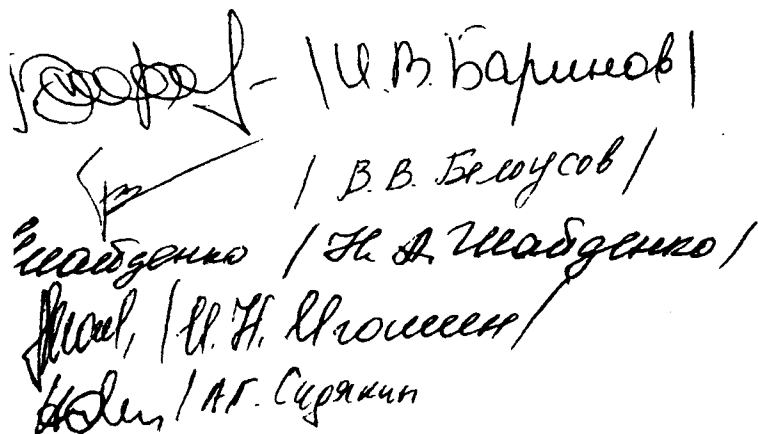 /И.В. Баринов/
/В.В. Белоусов/
Шайденко /Н.А. Шайденко/
/И.Н. Игошин/
/А.Г. Сидякин